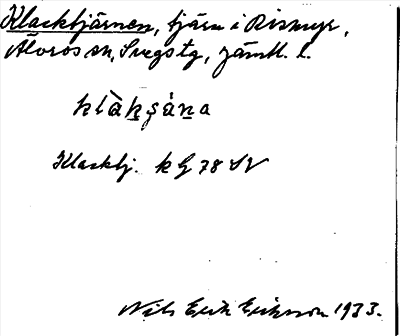 Klacktjärnen, tjärn i Rismyr,
Älvros sn, Svegs tg, Jämtl. l.
Klacktj. k G 78 SV
Nils Erik Eriksson 1933.